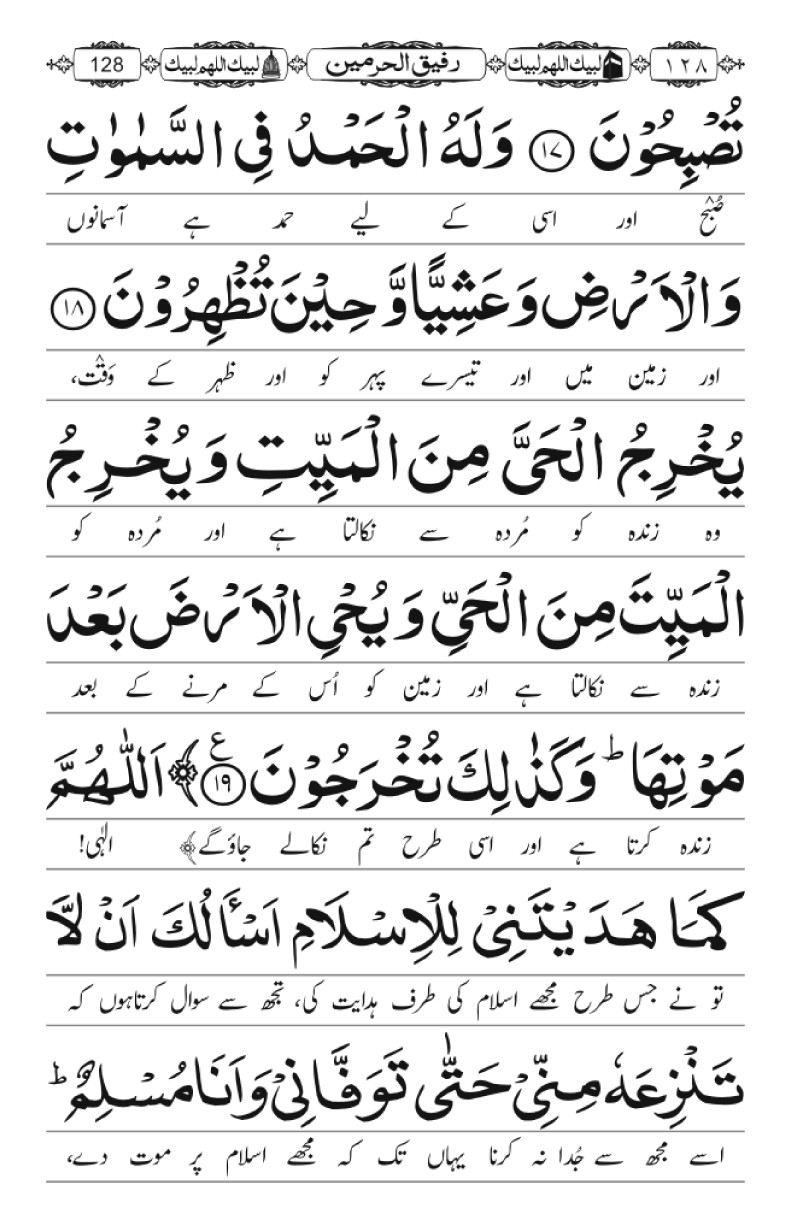 ١٢٨ لبیك اللهم لبیك رفیق الحرمین لبیك اللهم لبیك 128
تُصْبِحُوْنَ ﴿۱۷﴾ وَلَهُ الْحَمْدُ فِی السَّمٰوٰتِ
صُبْح اور اسی کے لیے حمد ہے آسمانوں
وَالْاَرْضِ وَعَشِیًّا وَّحِیْنَ تُظْهِرُوْنَ ﴿۱۸﴾
اور زمین میں اور تیسرے پہر کو اور ظہر کے وَقْت،
یُخْرِجُ الْحَیَّ مِنَ الْمَیِّتِ وَیُخْرِجُ
وہ زندہ کو مُردہ سے نکالتا ہے اور مُردہ کو
الْمَیِّتَ مِنَ الْحَیِّ وَیُحْیِ الْاَرْضَ بَعْدَ
زندہ سے نکالتا ہے اور زمین کو اُس کے مرنے کے بعد
مَوْتِهَا ؕ وَكَذٰلِكَ تُخْرَجُوْنَ ﴿۱۹﴾ ع ﴾ اَللّٰهُمَّ
زندہ کرتا ہے اور اسی طرح تم نکالے جاؤگے﴾ الٰہی!
كَمَا هَدَیْتَنِیْ لِلْاِسْلَامِ اَسْأَلُكَ اَنْ لَّا
تو نے جس طرح مجھے اسلام کی طرف ہدایت کی، تجھ سے سوال کرتاہوں کہ
تَنْزِعَهٗ مِنِّیْ حَتّٰی تَوَفَّانِیْ وَاَنَا مُسْلِمٌ ؕ
اسے مجھ سے جُدا نہ کرنا یہاں تک کہ مجھے اسلام پر موت دے،